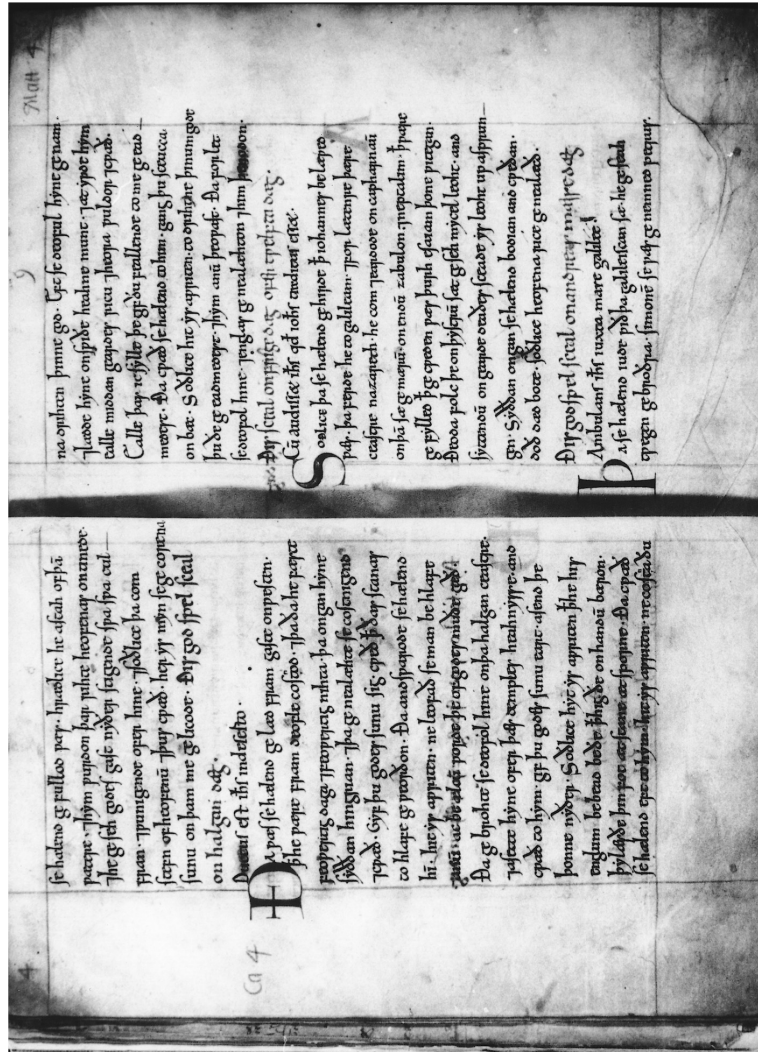 se hælend ge fullod wæs. hrædlice he astah of þā
wætere. ⁊hym wurdon þær rihte heofenas ontynede.
⁊he ge seh godes gast nyðer stigende swa swa cul-
fran. ⁊wunigende ofer hine. ⁊soðlice þa com
stefn of heofenū ⁊þus cwæð. her ys myn se ge corena
sunu on þam me ge licode. Ðis god spel sceal
on halgan dæg.
Ductus est ihs in deserto.
Ða wæs se hælend ge læd fram gaste on westen.
þ he wære fram deofle costod. ⁊þa ða he fæste
feowertig daga ⁊feowertig nihta. þa ongan hyne
syððan hingrian. ⁊þa ge nealæhte se costnigend
⁊cwæð. Gyf þu godes sunu sig cweð þ þas stanas
to hlafe ge weorðon. Ða andswarode se hælend
hī. hit ys awriten. ne leofað se man be hlafe
anū. ac be ælcū worde þe of godes muðe gæð.
Ða ge brohte se deofol hine on þa halgan ceastre.
⁊asette hyne ofer þæs temples heahnysse. and
cwæð to hym. gif þu godes sunu eart. asend þe
þonne nyðer. Soðlice hyt ys awriten þ he his
englum be bead be ðe þ hig ðe on handū bæron.
þy læs ðe þin fot æt stane æt sporne. Ða cwæð
se hælend eft to hym. hit ys awriten. ne costa ðu
Ca 4
4
Matt 4
9
na drihten þinne god. Eft se deofol hyne ge nam.
⁊lædde hyne on swiðe heahne munt. ⁊æt ywde hym
ealle middan geardes ricu ⁊hiora wuldor ⁊cwæð.
Ealle þas ic sylle þe gif ðu feallende to me ge ead-
metst. Ða cwæð se hælend to him. gang þu sceucca
on bæc. Soðlice hit ys awriten. to drihtne þinū gode
þu ðe ge eadmetst. ⁊hym anū þeowast. Ða forlet
se deofol hine. ⁊englas ge nealæhton ⁊him þenedon.
Ðis sceal on frige dæg
Cū audisset ihs qđ iohs traditus esset.
Soðlice þa se hælend ge hyrde þ iohannes belæwed
wæs. þa ferde he to galileam. ⁊for lætenre þære
ceastre nazareth. he com ⁊eardode on capharnaū
on þā sæ ge mærū. on endū zabulon. ⁊neptalim. þ wære
ge fylled þ ge cweden wæs þurh esaiam þone witegan.
Ðeoda folc þe on þystrū sæt ge seh mycel leoht. and
syttendū on earde deaðes sceade ys leoht up asprun-
gen. Syððan ongan se hælend bodian and cweðan.
doð dæd bote. soðlice heofena rice ge nealæcð.
Ðis godspel sceal on andreas mæsse dæg
Ambulans ihs iuxta mare galilee
Þa se hælend eode wið þa galileiscan sæ. he ge seah
twegen ge broðra. simonē se wæs ge nemned petrus.